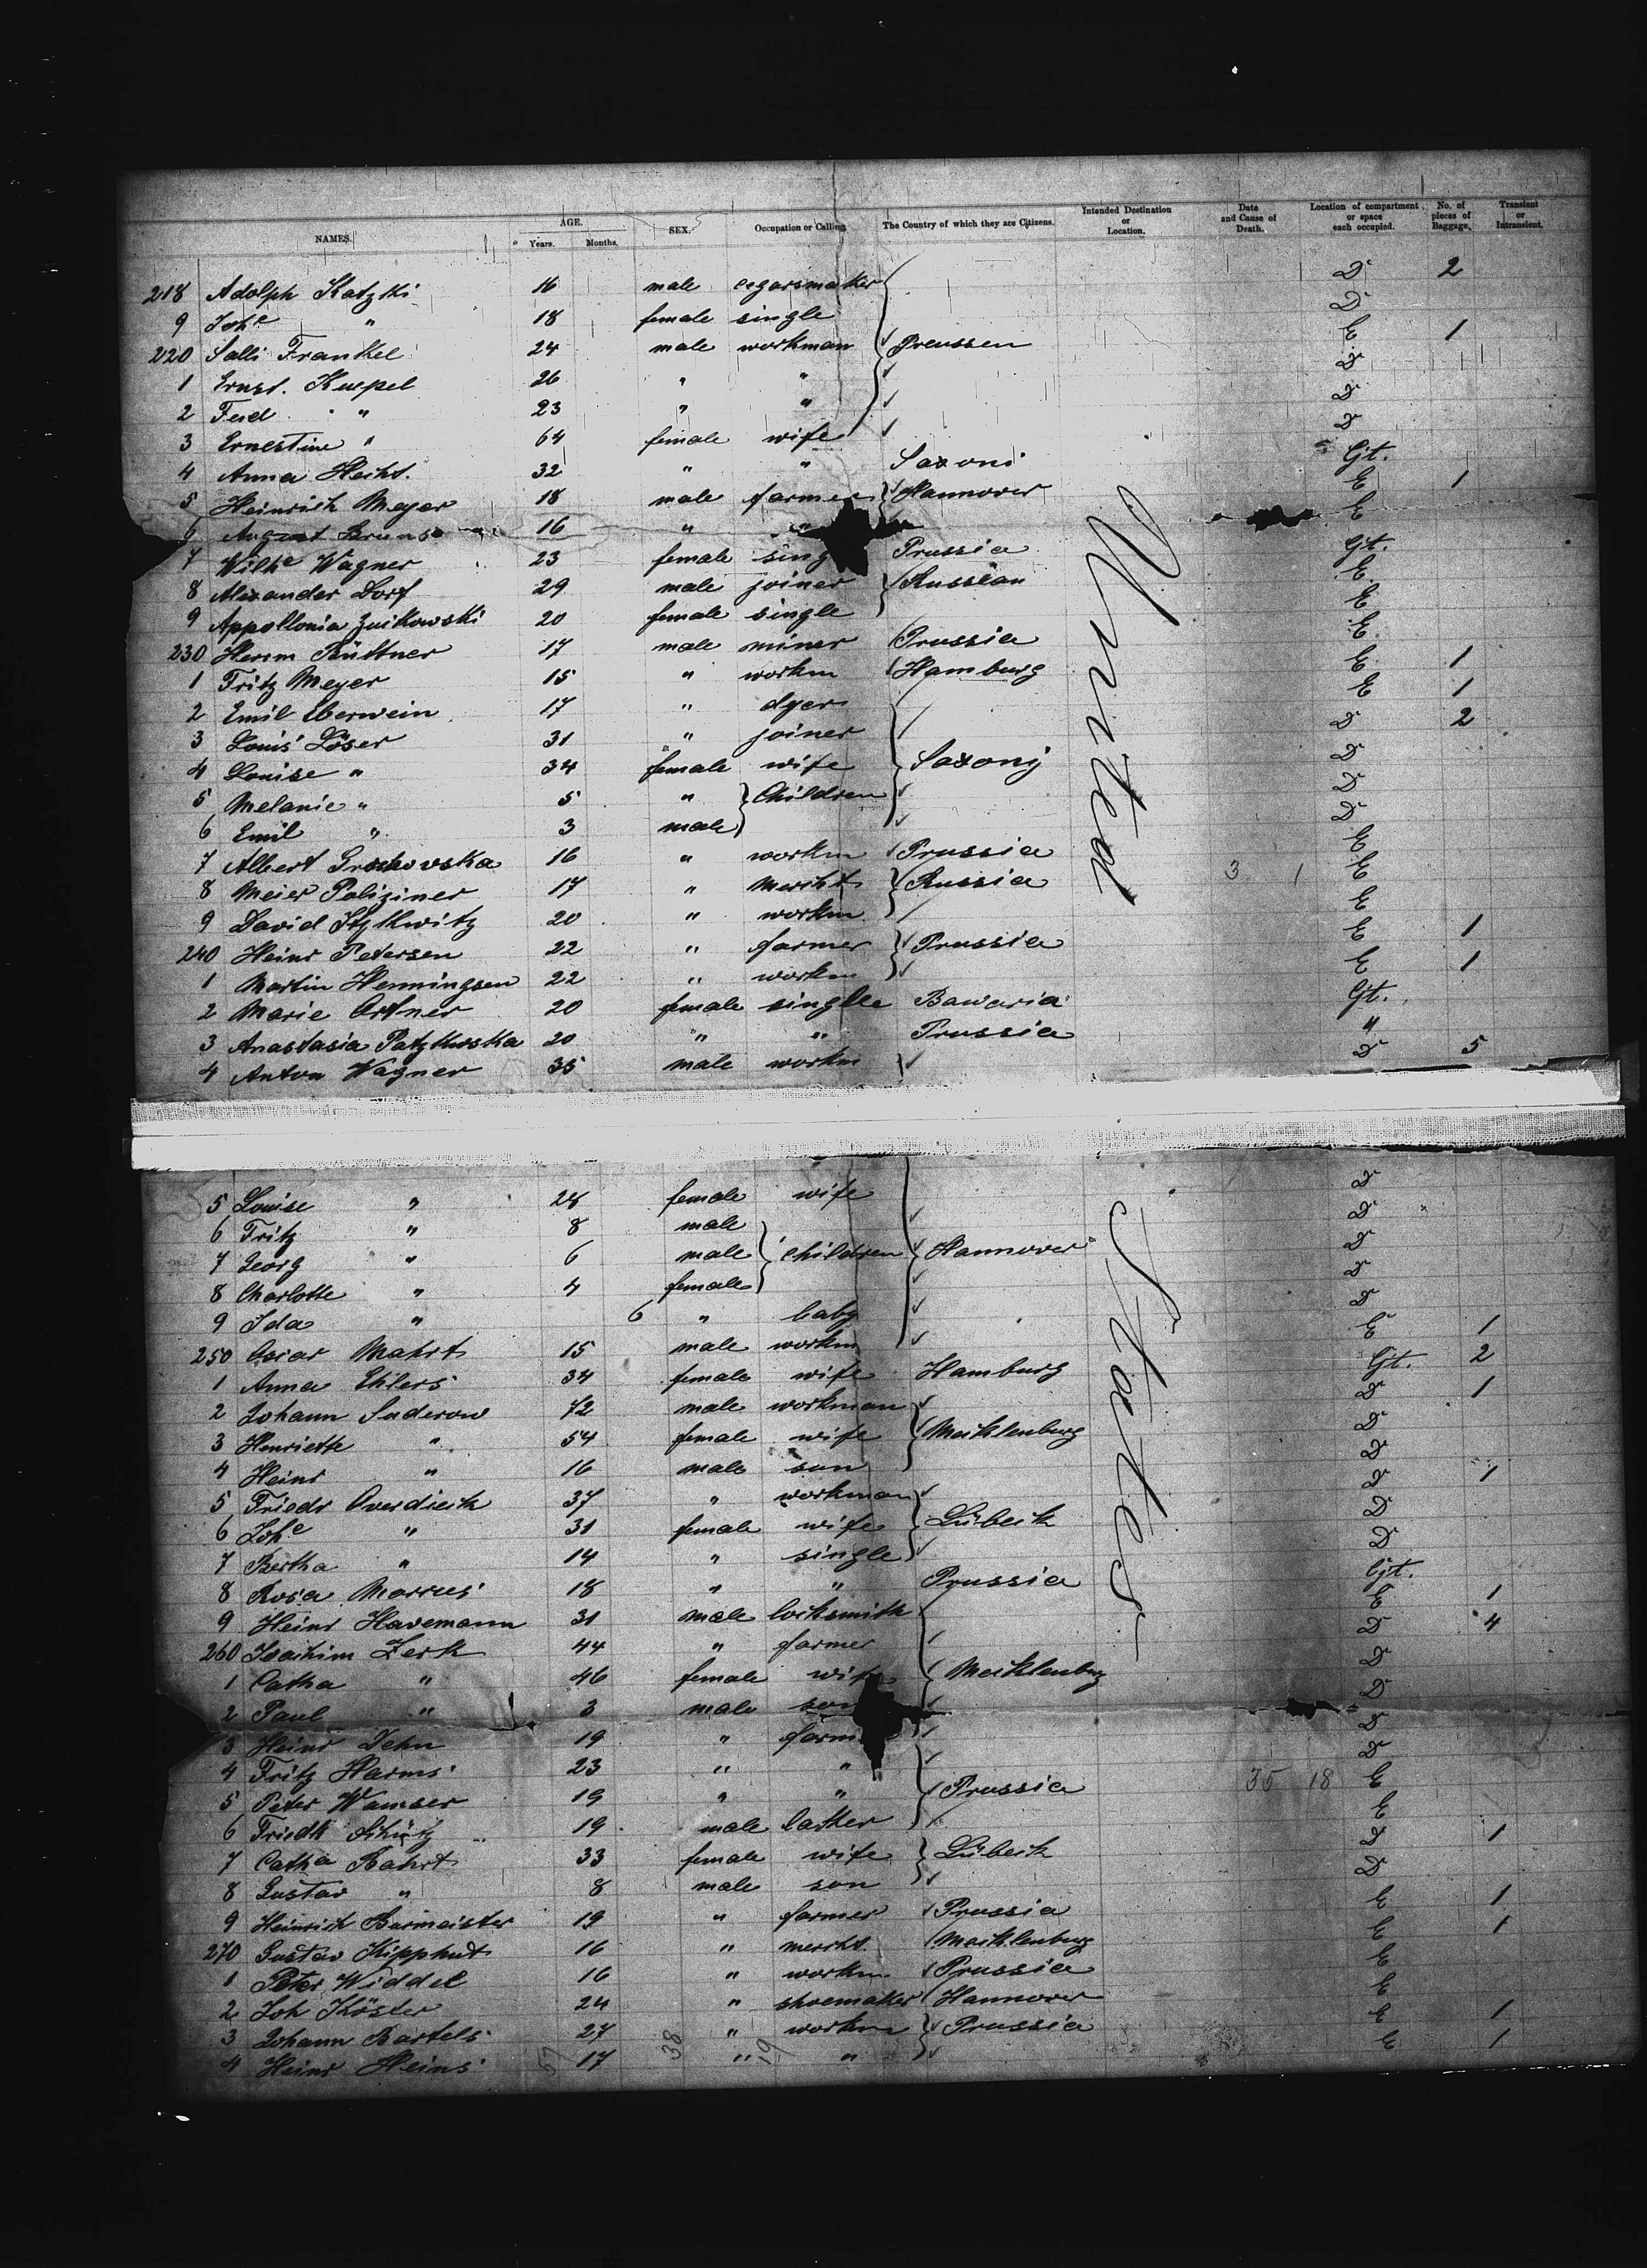 NAMES. AGE. Years. Months. SEX. Occupation or Calling The Country of which they are Citizens. Intended Destination or Location. Date and Cause of Death. Location of compartment or space each occupied. No. of pieces of Baggage. Transient or Intransient.
218 Adolph Katzki 16 male cigarsmaker D 2
9 Joh^e " 18 female single D
220 Salli Frankel 24 male workman Preussen E 1
1 Ernst. Kuepel 26 " " D
2 Ferd " 23 " " D
3 Ernestine " 64 female wife D
4 Anna Hecht. 32 " " Saxoni Gt.
5 Heinrich Meyer 18 male farmer Hannover E 1
6 August Bruns 16 " " E
7 Wilh^e Wagner 23 female sing Prussia Gt.
8 Alexander Dorf 29 male joiner Russian E
9 Appollonia Zuikowski 20 female single E
230 Herrm Büttner 17 male miner Prussia E
1 Fritz Meyer 15 " workm Hamburg E 1
2 Emil Eberwein 17 " dyer E 1
3 Louis Löser 31 " joiner D 2
4 Louise " 34 female wife Saxony D
5 Melanie " 5 " Children D
6 Emil " 3 male D
7 Albert Grochovska 16 " workm Prussia E
8 Meier Poliziner 17 " Mercht Russia 3 1 E
9 David 20 " workm E
240 Heinr Petersen 22 " farmer Prussia E 1
1 Martin Henningsen 22 " workm E 1
2 Marie Ortner 20 female single Bawaria Gt.
3 Anastasia 20 " " Prussia "
4 Anton Wagner 35 male workm D 5
United
5 Louise " 28 female wife D
6 Fritz " 8 male D
7 Georg " 6 male children Hannover D
8 Charlotte " 4 female D
9 Ida " 6 " baby D
250 Oscar Mahrt 15 male workm E 1
1 Anna Ehlers 34 female wife Hamburg Gt. 2
2 Johann Suderow 72 male workman D 1
3 Henriette " 54 female wife Mecklenburg D
4 Heinr " 16 male son D
5 Friedr Overdieck 37 " workman D 1
6 Joh^e " 31 female wife Lübeck D
7 Bertha " 14 " single D
8 Rosa Marcus 18 " " Prussia Gt.
9 Heinr Havemann 31 male locksmith E 1
260 Joachim Zerk 44 " farmer D 4
1 Catha " 46 female wife Mecklenburg D
2 Paul " 3 male son D
3 Heinr Jehn 19 " farm D
4 Fritz Harms 23 " " D
5 Peter Wamser 19 " " Prussia 35 18 E
6 Friedk Schütz 19 male E
7 Cath^a Bahrt 33 female wife Lübeck D 1
8 Gustav " 8 male son D
9 Heinrich Burmeister 19 " farmer Prussia E 1
270 Gustav Kipphut 16 " mercht. Mecklenburg E 1
1 Peter Widdel 16 " workm Prussia E
2 Joh Köster 24 " shoemaker Hannover E
3 Johann Bartels 27 " workm Prussia E 1
4 Heinr Heins 17 " " E 1
States
57 38 19